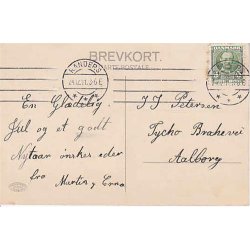 BREVKORT.
CARTE POSTALE
DANMARK
RANDERS
24.12.11.3-6E
En Glædelig
Jul og et godt
Nytaar ønskes eder
fra Martin & Erna
J J Petersen
Tycho Brahevei
Aalborg